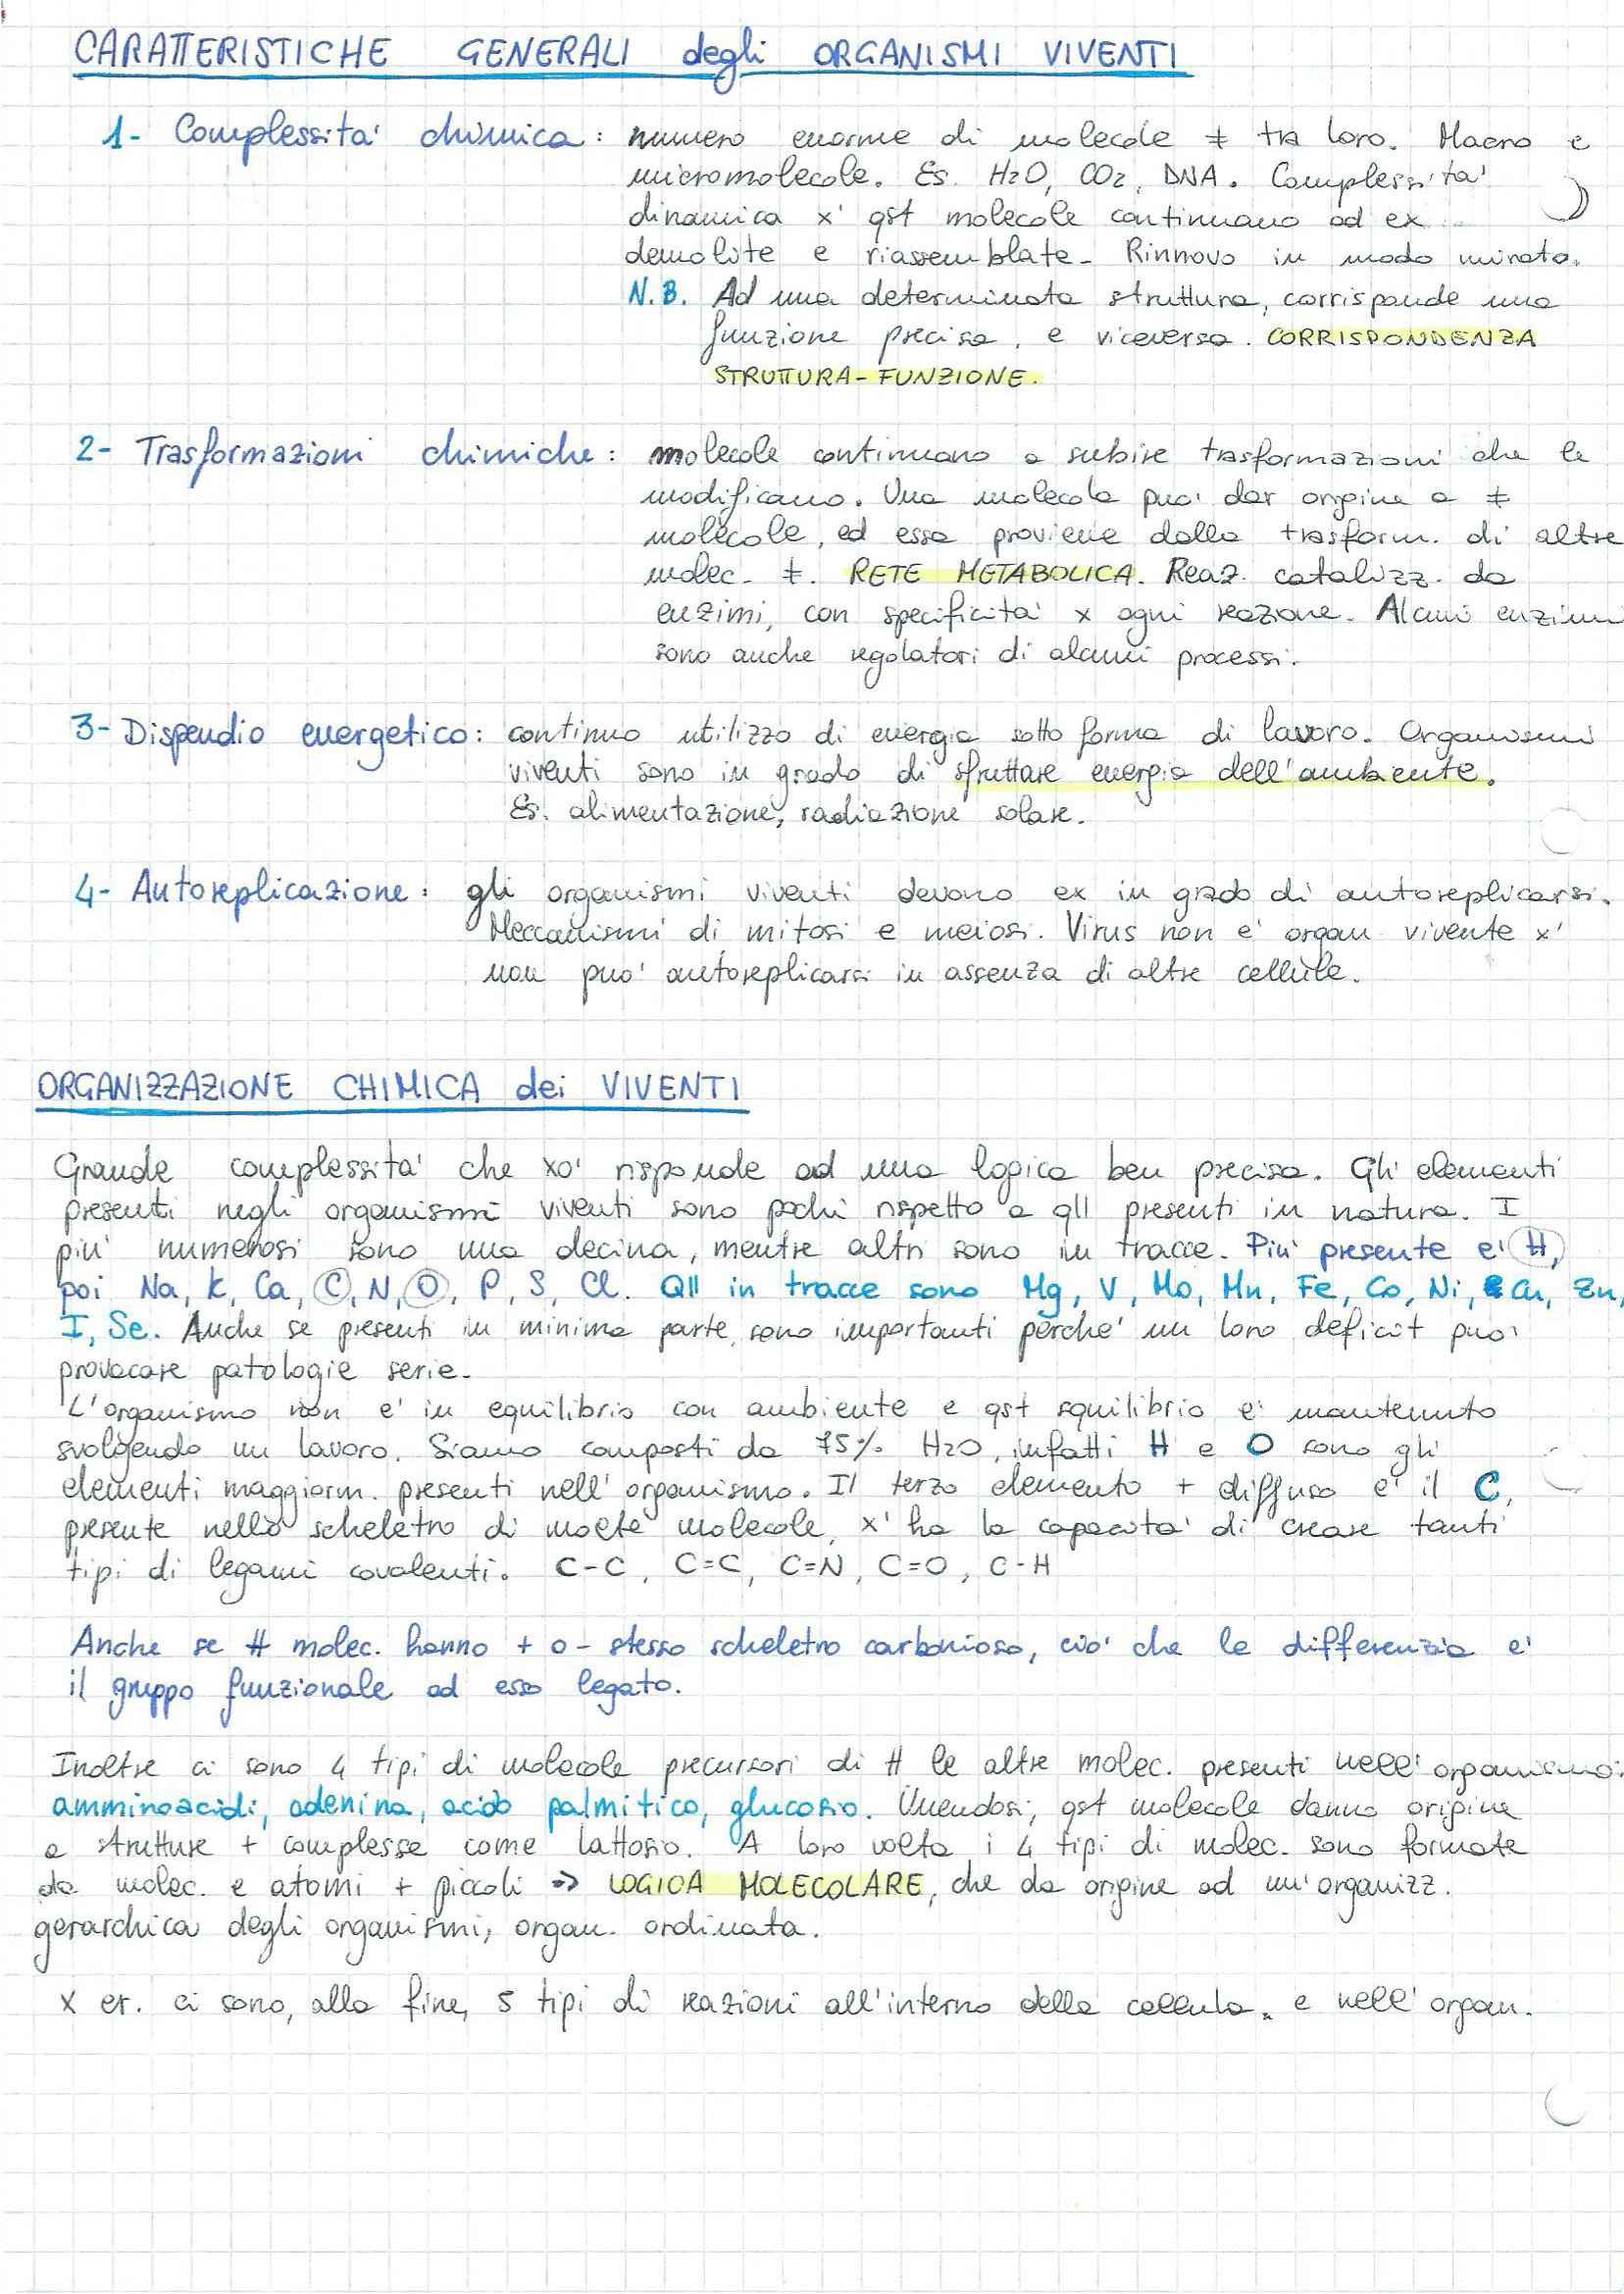 CARATTERISTICHE GENERALI degli ORGANISMI VIVENTI
1- Complessita' chimica: numero enorme di molecole ≠ tra loro. Macro e
micromolecole. Es. H2O, CO2, DNA. Complessita'
dinamica x' qst molecole continuano ad ex
demolite e riassemblate. Rinnovo in modo mirato.
N.B. Ad una determinata struttura, corrisponde una
funzione precisa, e viceversa. CORRISPONDENZA
STRUTTURA-FUNZIONE.
2- Trasformazioni chimiche: molecole continuano a subire trasformazioni che le
modificano. Una molecola puo' dar origine a ≠
molecole, ed essa proviene dalla trasform. di altre
molec. ≠. RETE METABOLICA. Reaz. catalizz. da
enzimi, con specificita' x ogni reazione. Alcuni enzimi
sono anche regolatori di alcuni processi.
3- Dispendio energetico: continuo utilizzo di energia sotto forma di lavoro. Organismi
viventi sono in grado di sfruttare energia dell'ambiente.
Es. alimentazione, radiazione solare.
4- Autoreplicazione: gli organismi viventi devono ex in grado di autoreplicarsi.
Meccanismi di mitosi e meiosi. Virus non e' organ vivente x'
non puo' autoreplicarsi in assenza di altre cellule.
ORGANIZZAZIONE CHIMICA dei VIVENTI
Grande complessita' che xo' risponde ad una logica ben precisa. Gli elementi
presenti negli organismi viventi sono pochi rispetto a qll presenti in natura. I
piu' numerosi sono una decina, mentre altri sono in tracce. Piu' presente e' H,
poi Na, K, Ca, C, N, O, P, S, Cl. Qll in tracce sono Mg, V, Mo, Mn, Fe, Co, Ni, Cu, Zn,
I, Se. Anche se presenti in minima parte, sono importanti perche' un loro deficit puo'
provocare patologie serie.
L'organismo non e' in equilibrio con ambiente e qst squilibrio e' mantenuto
svolgendo un lavoro. Siamo composti da 75% H2O, infatti H e O sono gli
elementi maggiorm. presenti nell'organismo. Il terzo elemento + diffuso e' il C,
presente nello scheletro di molte molecole, x' ha la capacita' di creare tanti
tipi di legami covalenti. C-C, C=C, C=N, C=O, C-H
Anche se # molec. hanno + o - stesso scheletro carbonioso, cio' che le differenzia e'
il gruppo funzionale ad esso legato.
Inoltre ci sono 4 tipi di molecole precursori di # le altre molec. presenti nell'organismo:
amminoacidi, adenina, acido palmitico, glucosio. Unendosi, qst molecole danno origine
a strutture + complesse come lattosio. A loro volta i 4 tipi di molec. sono formate
da molec. e atomi + piccoli => LOGICA MOLECOLARE, che da origine ad un'organizz.
gerarchica degli organismi, organ. ordinata.
X es. ci sono, alla fine, 5 tipi di reazioni all'interno della cellula. e nell'organ.